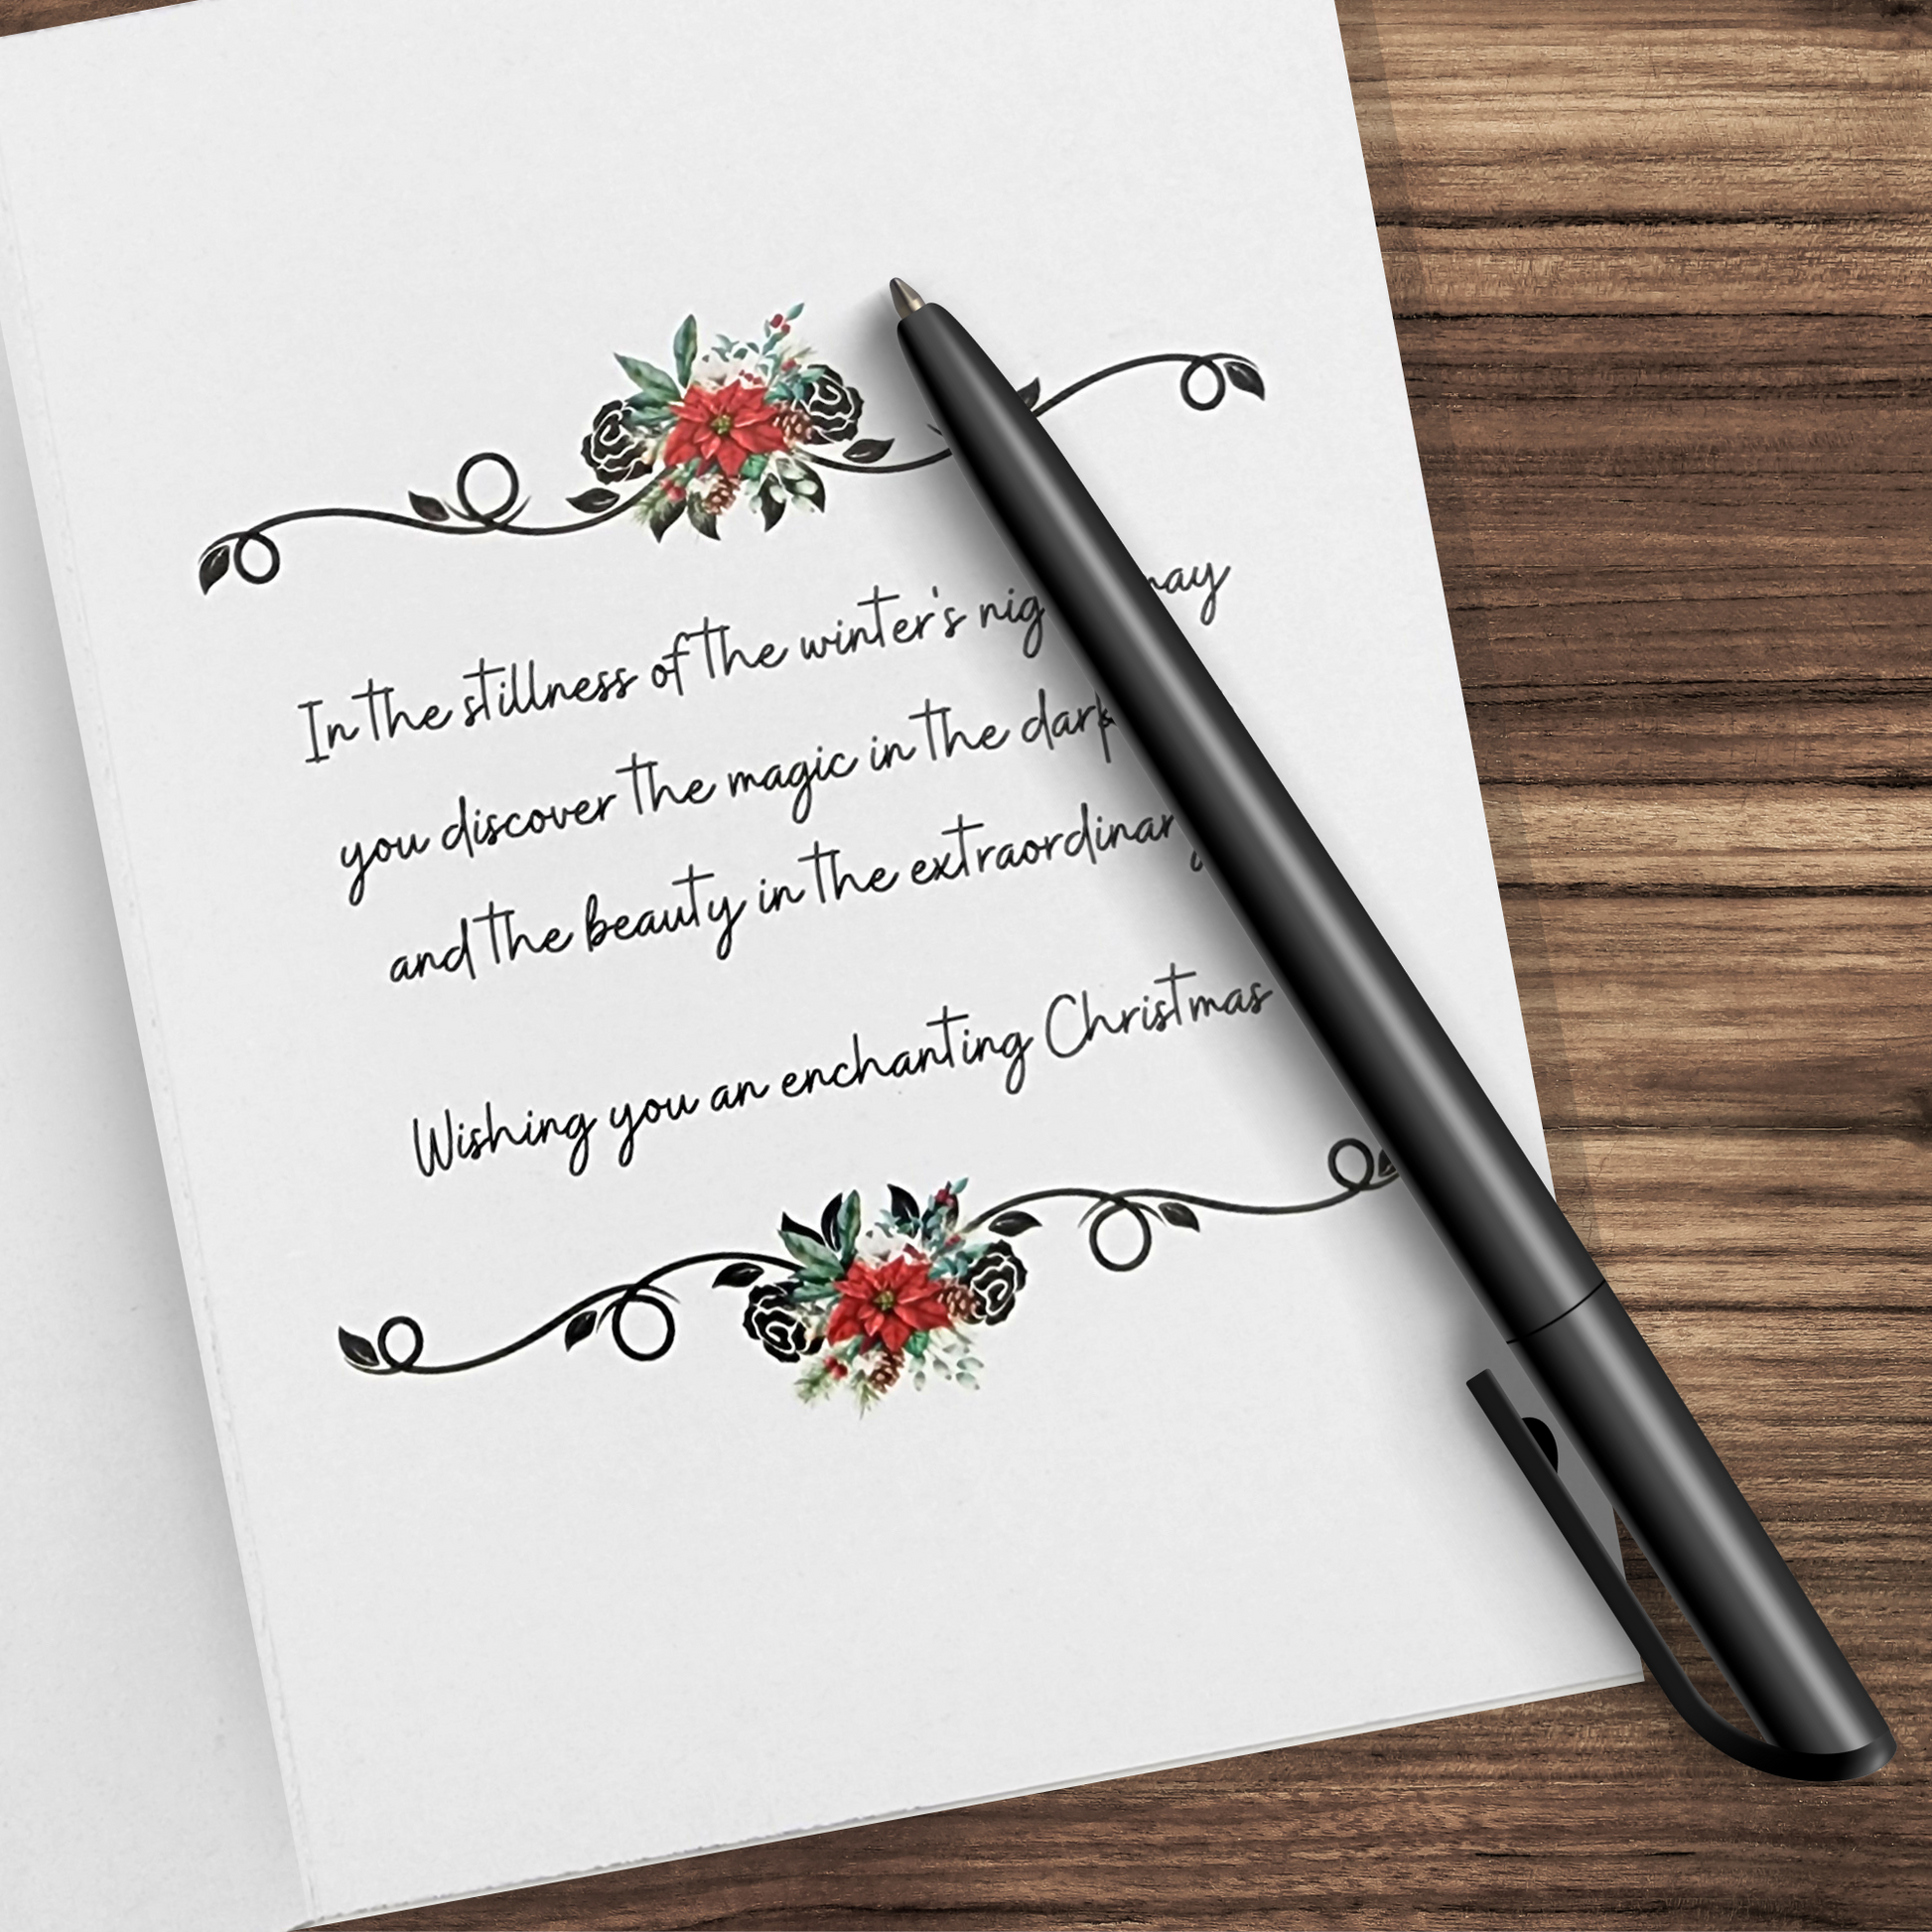 In the stillness of the winter's nig may
you discover the magic in the dark
and the beauty in the extraordinary
Wishing you an enchanting Christmas